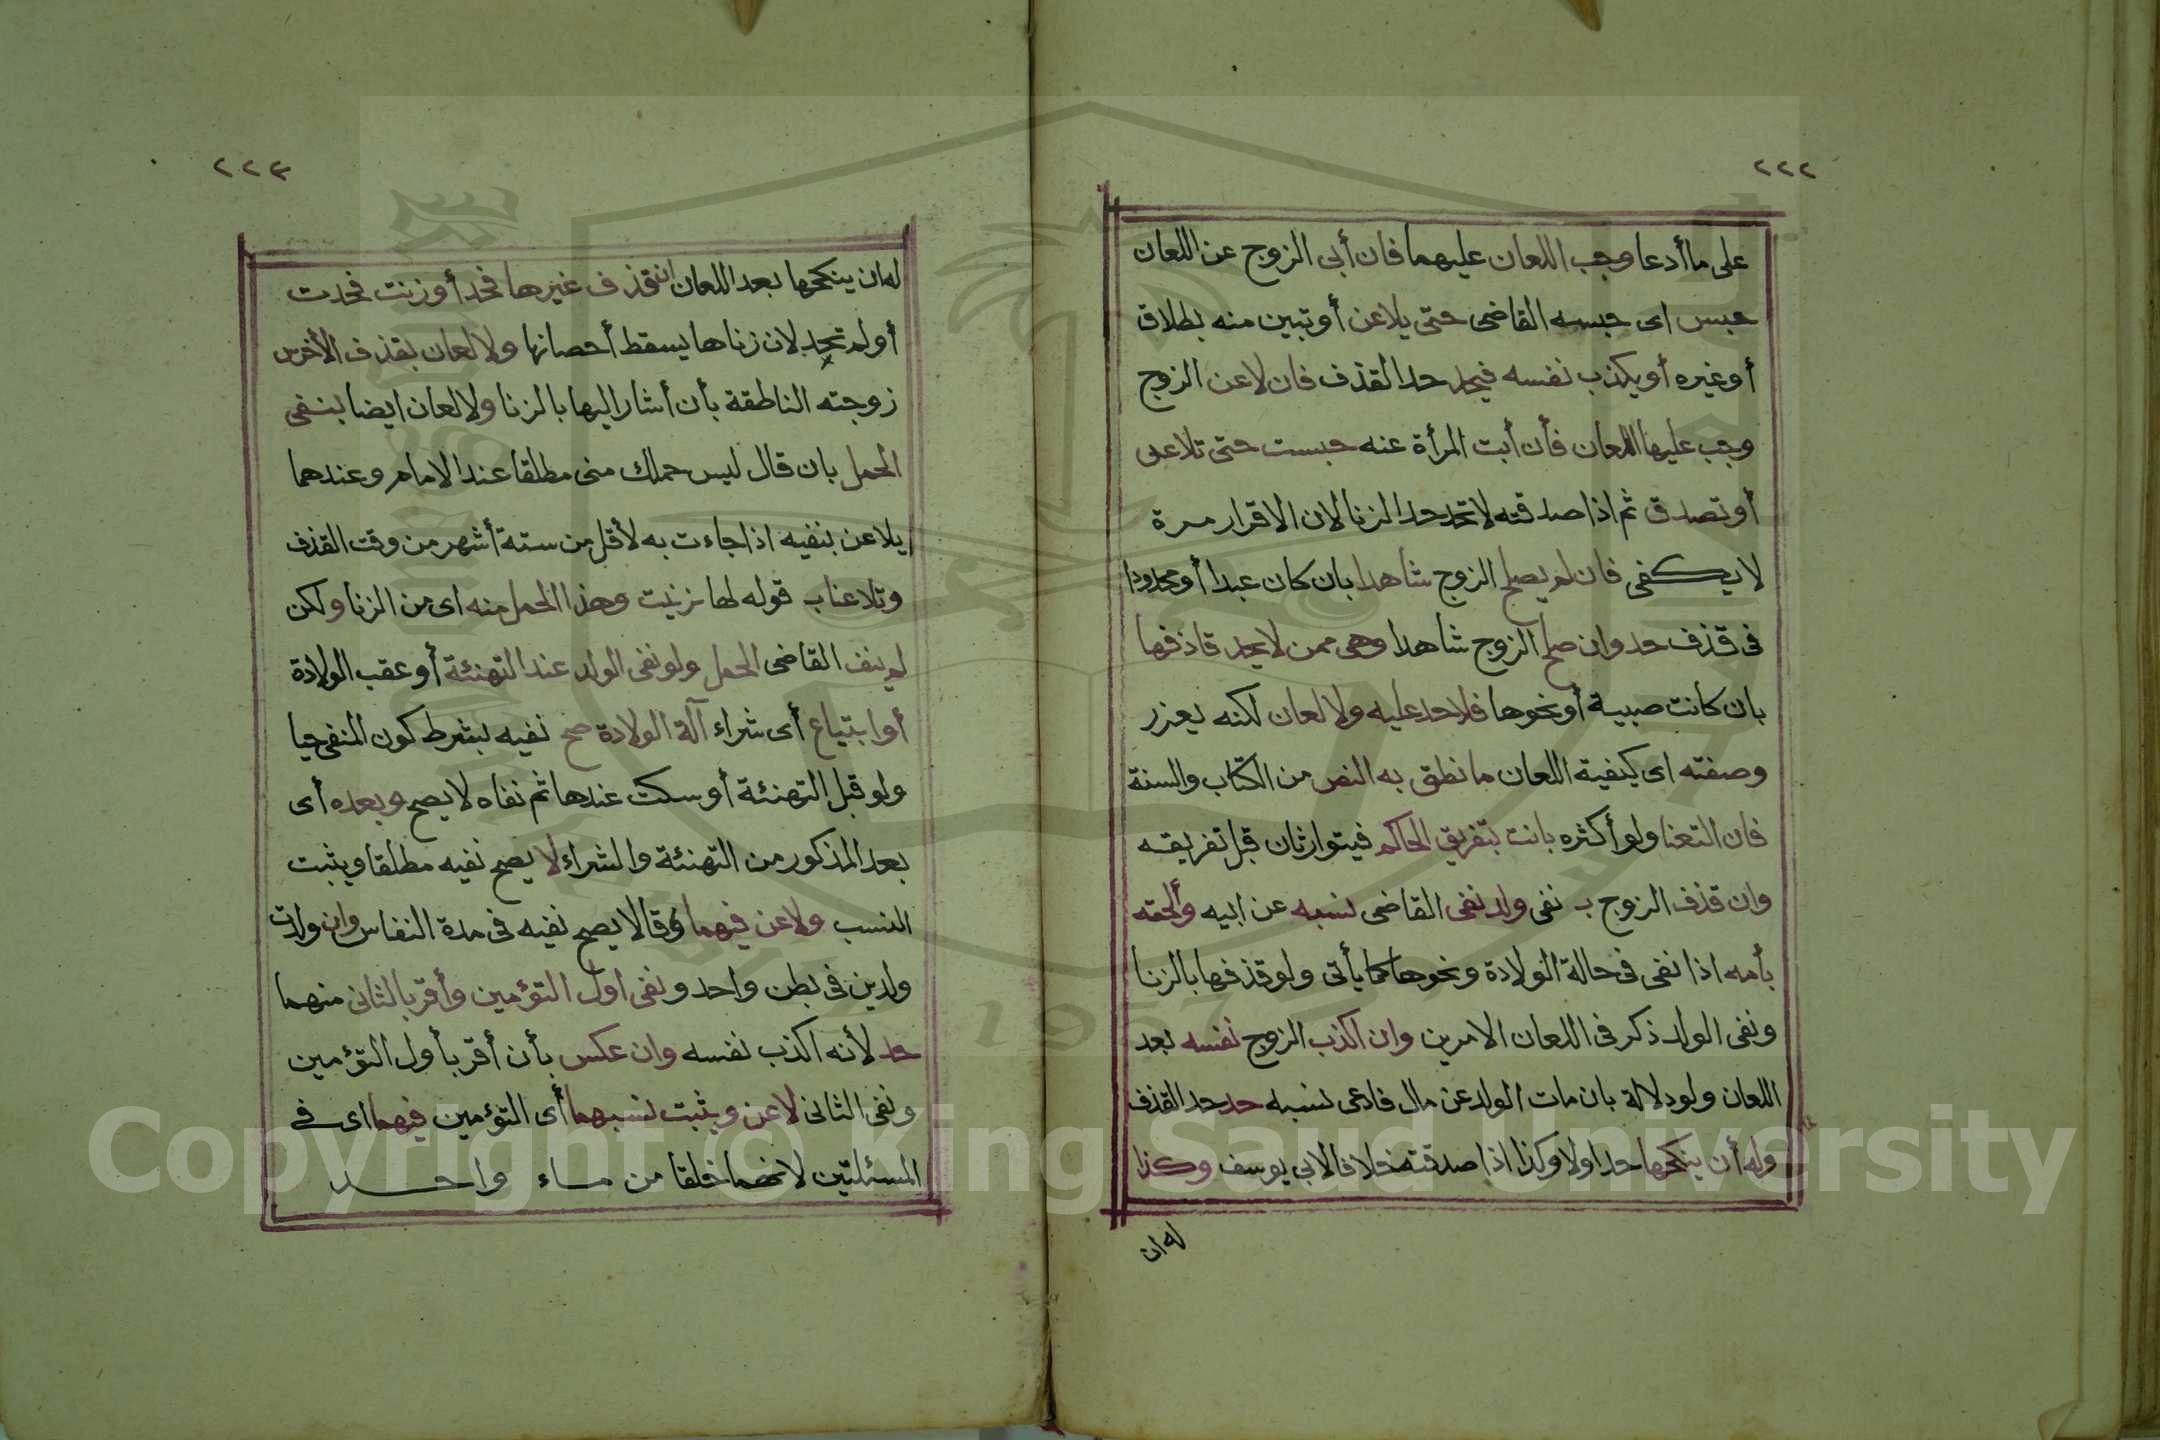 ٢٢٢
على ما أدعا وجب اللعان عليهما فان أبى الزوج عن اللعان
حبس اى حبسه القاضى حتى يلاعن أو تبين منه بطلاق
أو غيره أو يكذب نفسه فيحد حد القذف فان لاعن الزوج
وجب عليها اللعان فأن أبت المرأة عنه حبست حتى تلاعن
أو تصدق ثم اذا صدقته لا تحد حد الزنا لان الاقرار مرة
لا يكفى فان لم يصلح الزوج شاهدا بان كان عبدا أو محدودا
فى قذف حد وان صلح الزوج شاهدا وهى ممن لا يحد قاذفها
بان كانت صبية أو نحوها فلا حد عليه ولا لعان لكنه يعزر
وصفته اى كيفية اللعان ما نطق به النص من الكتاب والسنة
فان التعنا ولو أكثره بانت بتفريق الحاكم فيتوارثان قبل تفريقه
وان قذف الزوج ب نفى ولد نفى القاضى نسبه عن ابيه وألحقه
بأمه اذا نفى فى حالة الولادة ونحوها كما يأتى ولو قذفها بالزنا
ونفى الولد ذكر فى اللعان الامرين وان اكذب الزوج نفسه بعد
اللعان ولو دلالة بان مات الولد عن مال فادعى نسبه حد حد القذف
وله أن ينكحها حد اولا وكذا اذا صدقته خلافا لابى يوسف وكذا
له ان
٢٢٣
له ان ينكحها بعد اللعان ان قذف غيرها فحد أو زنت فحدت
أو لم تحد لان زناها يسقط أحصانها ولا لعان بقذف الأخرس
زوجته الناطقة بأن أشار اليها بالزنا ولا لعان ايضا بنفى
الحمل بان قال ليس حملك منى مطلقا عند الامام وعندهما
يلاعن بنفيه اذا جاءت به لأقل من ستة أشهر من وقت القذف
وتلاعنا ب قوله لها زنيت وهذا الحمل منه اى من الزنا ولكن
لم ينف القاضى الحمل ولو نفى الولد عند التهنئة أو عقب الولادة
أو ابتياع أى شراء آلة الولادة صح نفيه بشرط كون المنفى حيا
ولو قبل التهنئة أو سكت عندها ثم نفاه لا يصح وبعده أى
بعد المذكور من التهنئة والشراء لا يصح نفيه مطلقا ويثبت
النسب ولاعن فيهما وقالا يصح نفيه فى مدة النفاس وان ولدت
ولدين فى بطن واحد ونفى اول التؤمين وأقر بالثانى منهما
حد لأنه اكذب نفسه وان عكس بأن أقر بأول التؤمين
ونفى الثانى لاعن ويثبت نسبهما أى التؤمين فيهما اى فى
المسئلتين لانهما خلقا من ماء واحد
Copyright © King Saud University
1957